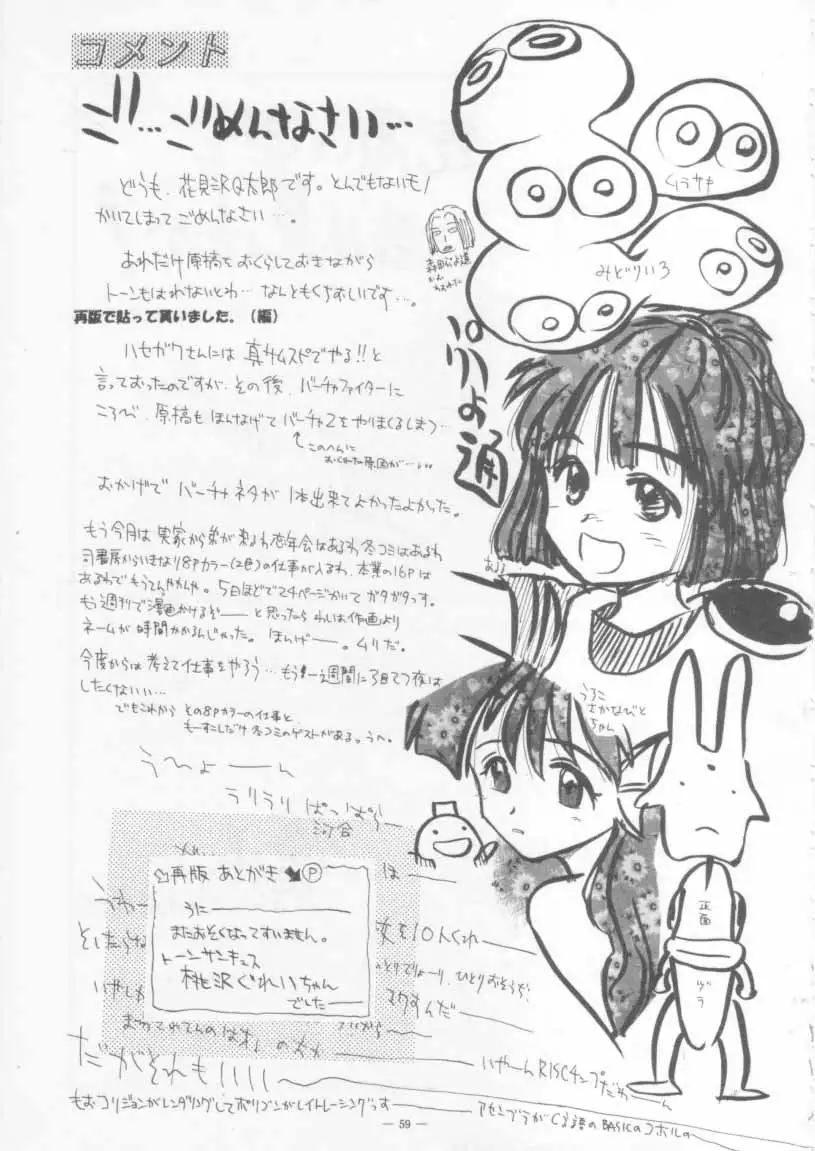 コメント
ゴ…ごめんなさい…
どうも、花見沢Q太郎です。とんでもないモノ
かいてしまってごめんなさい…。
あれだけ原稿をおくらしておきながら
トーンもはれないとわ…なんともくちおしいです…。
再版で貼って貰いました。(編)
ハセガワさんには 真サムスピでやる!!と
言っておったのですが、その後、バーチャファイターに
ころび、原稿も ほんなげて バーチャ2をやりまくるしまつ…
↑このへんに
おくれた原因が…
おかげで バーチャネタが 1本出来てよかったよかった。
もう今月は 実家から弟が来るわ 忘年会はあるわ 冬コミはあるわ
司書房からいきなり8Pカラー(2色)の仕事が入るわ、本業の16Pは
あるわで もうてんやわんや。5日ほどで24ページかいて ガタガタっす。
もう週刊で漫画かけるぞ── と思ったら わしは作画より
ネームが 時間かかるんじゃった。ほんげー。ムリだ。
今度からは 考えて仕事をやろう…もう 一週間に3回てつ夜は
したくない…
でもこれから その8Pカラーの仕事と、
もーすこしだけ 冬コミのゲストがあるっうへ。
う〜ひょーん
ラリラリ ぱっぱら
河合
クラサキ
みどりいろ
うろこ
さかなびと
ちゃん
再版 あとがき P
うに
またおそくなってすいません。
トーンサンキュス
桃沢ぐれいちゃん
でした
は
を10人くれ
ひとりおそうぢ!
マクすんだ
正面
ヅラ
だがそれも
いやーん RISCチップだわーん
もおコリジョンがレンダリングしてポリゴンがレイトレーシングっす
アセンブラがC言語のBASICのコボルの
— 59 —